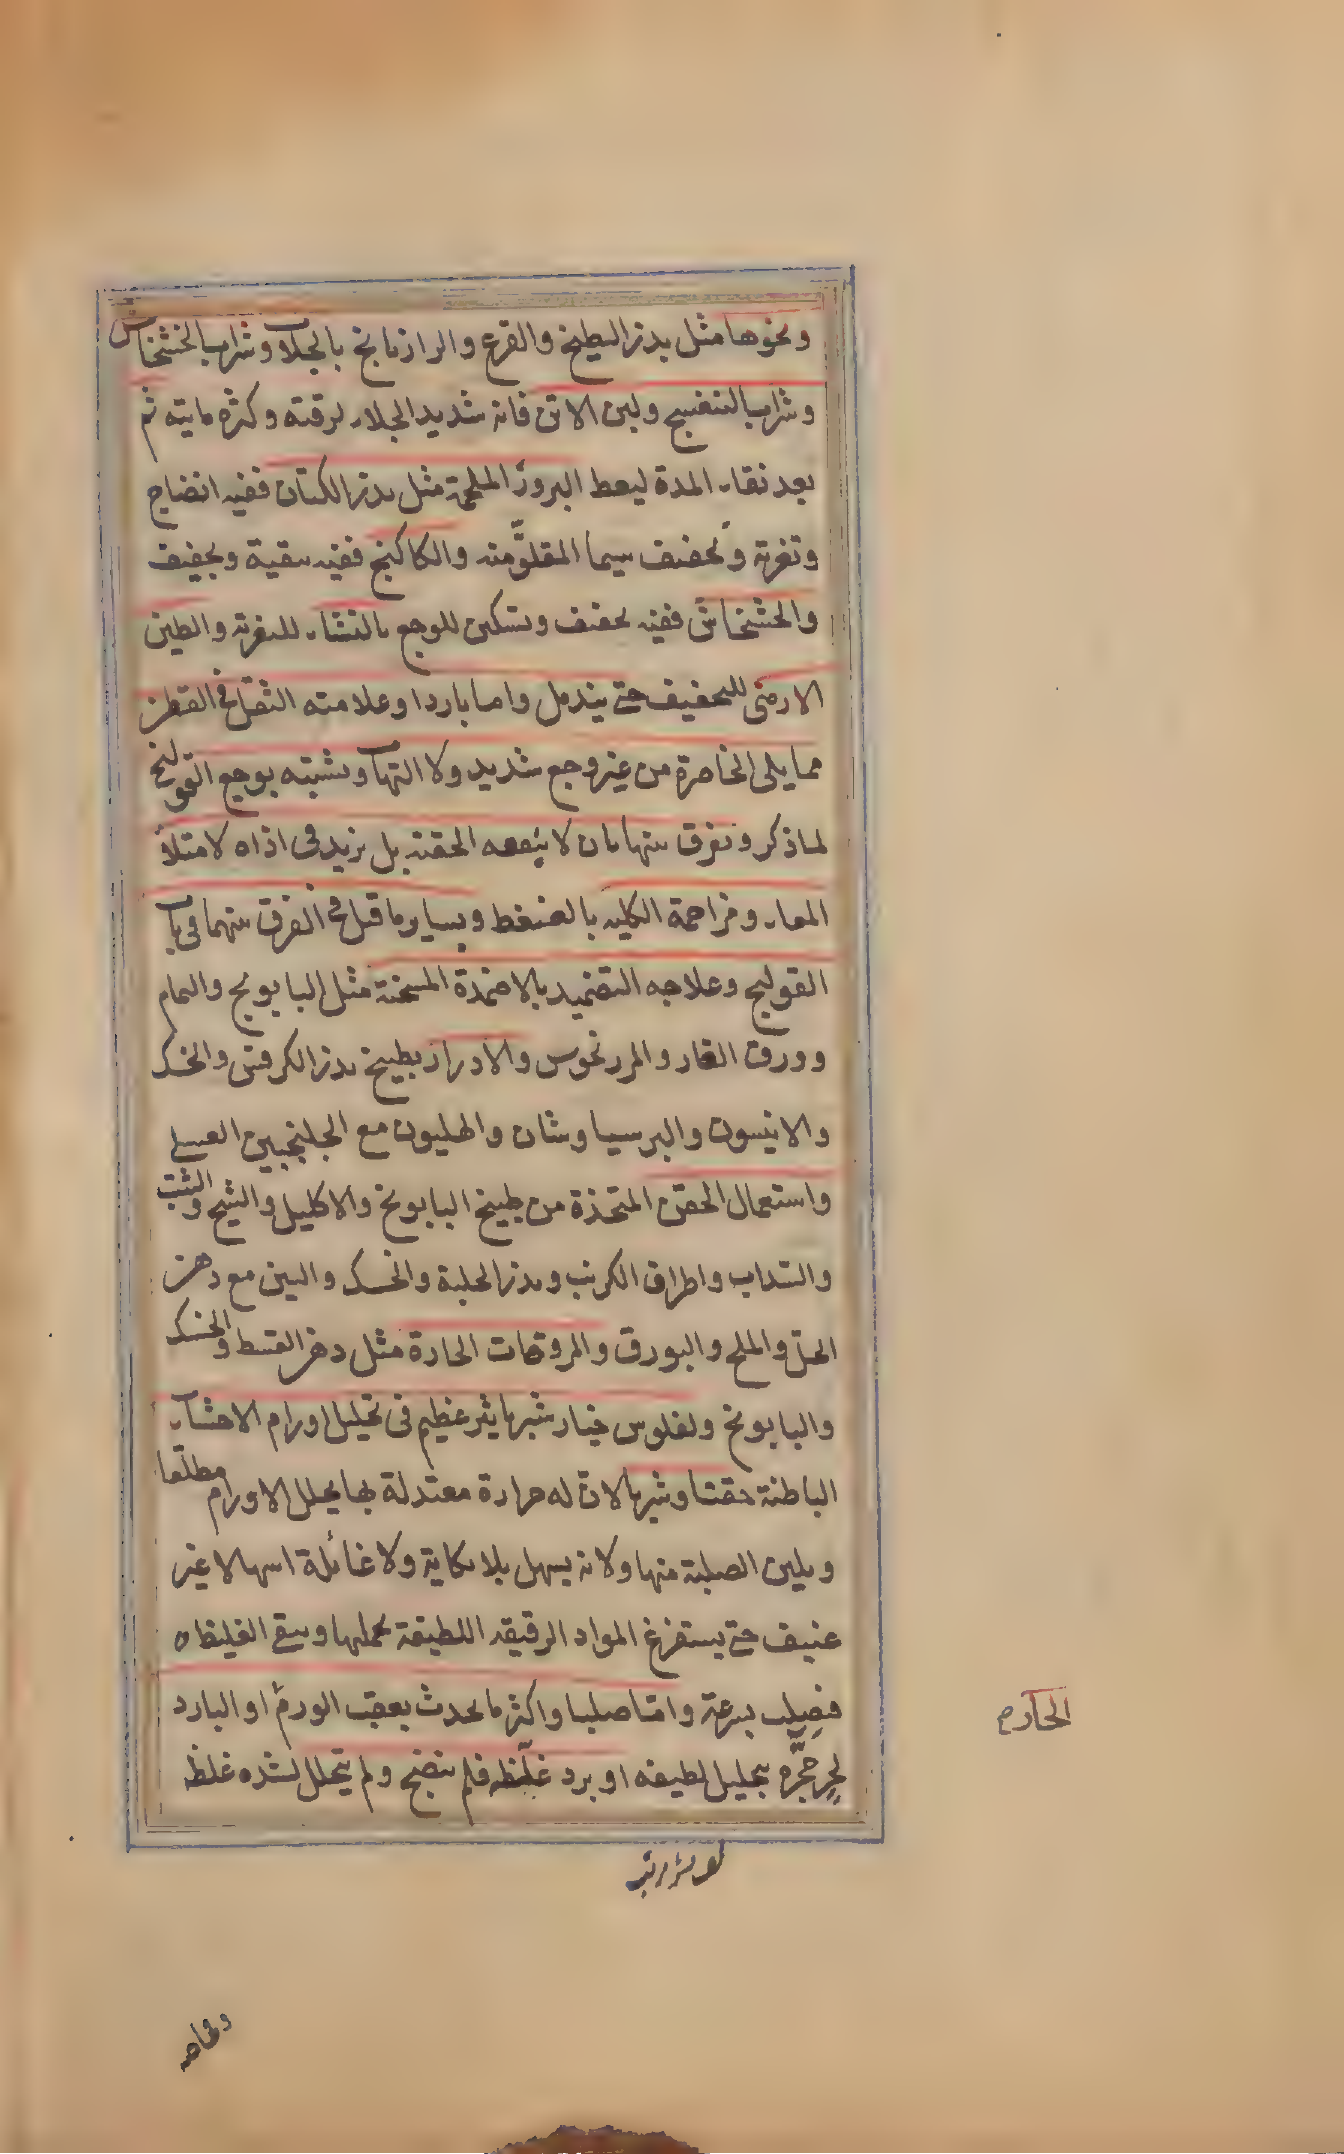 ونحوها مثل بذر البطيخ والقرع والرازيانج بالجلاب وشراب الخشخاش
وشراب البنفسج ولبن الاتن فانه شديد الجلاء لرقته وكثرة مايته ثم
بعد نقاء المدة ليعط البزور الملحمة مثل بذر الكتان ففيه انضاج
وتغرية وتجفيف سيما المقلو منه والكاكنج ففيه تنقية وتجفيف
والخشخاش ففيه تجفيف وتسكين للوجع بالنشاء للتغرية والطين
الارمنى للتجفيف حتى يندمل واما باردا وعلامته الثقل فى القطن
مما يلى الخاصرة من غير وجع شديد ولا التهاب ويشبته بوجع القولنج
لما ذكر ويفرق بينهما بان لا ينفعه الحقنة بل يزيد فى اذاه لامتلاء
المعاء ومزاحمة الكلية بالضغط وبساير ما قيل فى الفرق بينهما فى باب
القولنج وعلاجه التضميد بالاضمدة المسخنة مثل البابونج والنمام
وورق الغار والمرزنجوس والادرار بطبيخ بذر الكرفس والخسك
والانيسون والبرسياوشان والهليون مع الجلنجبين العسلى
واستعمال الحقن المتخذة من طبيخ البابونج والاكليل والشيح والشبت
والسداب واطراف الكرنب وبذر الحلبة والخسك والتين مع دهن
الحل والملح والبورق والمروخات الحارة مثل دهن القسط والخسك
والبابونج ولفلوس خيار شنبر تاثير عظيم فى تحليل اورام الاحشاء
الباطنة حقنا وشربا لان له حرارة معتدلة بها يحلل الاورام مطلقا
ويلين الصلبة منها ولانه يسهل بلا نكاية ولا غائلة اسهالا غير
عنيف حتى يستفرغ المواد الرقيقة اللطيفة بحملها ويبقى الغليظة
فيصلب بسرعة واما صلبا واكثر ما يحدث بعقب الورم او البارد
لحر حجره بتحليل لطيفه او برد غلظه فلم ينضج ولم يتحلل لشده غلظ
الحار م